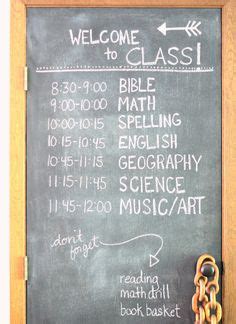 WELCOME
to CLASS!
8:30-9:00 BIBLE
9:00-10:00 MATH
10:00-10:15 SPELLING
10:15-10:45 ENGLISH
10:45-11:15 GEOGRAPHY
11:15-11:45 SCIENCE
11:45-12:00 MUSIC/ART
don't
forget
reading
math drill
book basket